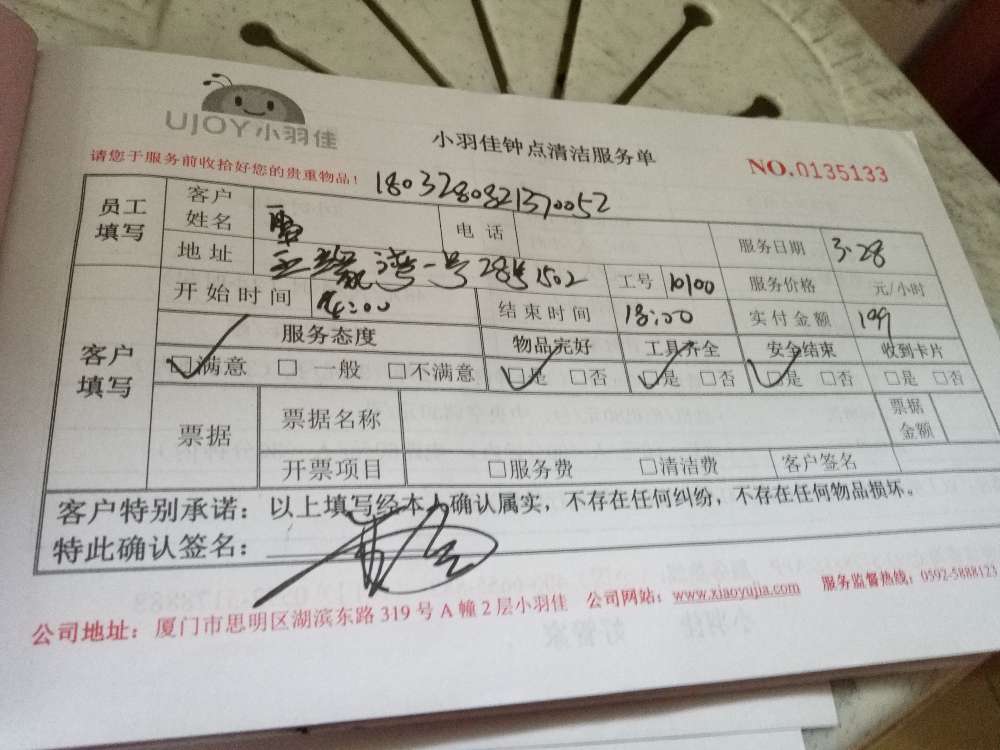 UJOY小羽佳
小羽佳钟点清洁服务单
NO.0135133
请您于服务前收拾好您的贵重物品!
1803280821370052
员工填写 客户姓名 电话 服务日期 3·28
地址 湾一号28号1502 工号 10100 服务价格 元/小时
客户填写 开始时间 14:00 结束时间 18:00 实付金额 199
服务态度 物品完好 工具齐全 安全结束 收到卡片
□满意 □一般 □不满意 □是 □否 □是 □否 □是 □否 □是 □否
票据 票据名称 票据金额
开票项目 □服务费 □清洁费 客户签名
客户特别承诺：以上填写经本人确认属实，不存在任何纠纷，不存在任何物品损坏。
特此确认签名：
公司地址：厦门市思明区湖滨东路319号A幢2层小羽佳 公司网站：www.xiaoyujia.com 服务监督热线：0592-5888123